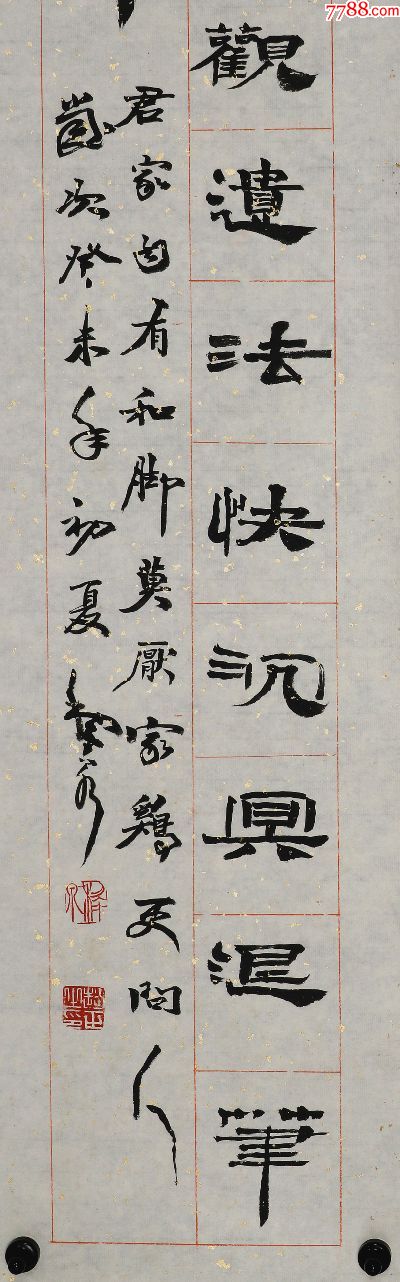 7788.com
觀遺法快沉退筆
君家自有和脚莫厭家鷄更問人
歲次癸未年初夏